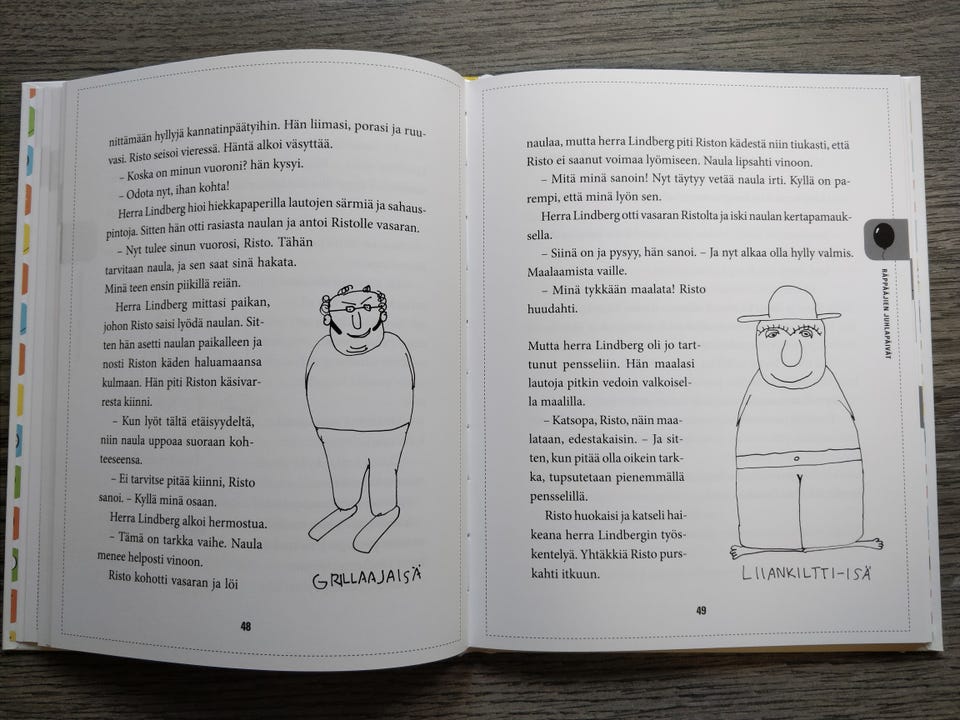 nittämään hyllyjä kannatinpäätyihin. Hän liimasi, porasi ja ruu-
vasi. Risto seisoi vieressä. Häntä alkoi väsyttää.
– Koska on minun vuoroni? hän kysyi.
– Odota nyt, ihan kohta!
Herra Lindberg hioi hiekkapaperilla lautojen särmiä ja sahaus-
pintoja. Sitten hän otti rasiasta naulan ja antoi Ristolle vasaran.
– Nyt tulee sinun vuorosi, Risto. Tähän
tarvitaan naula, ja sen saat sinä hakata.
Minä teen ensin piikillä reiän.
Herra Lindberg mittasi paikan,
johon Risto saisi lyödä naulan. Sit-
ten hän asetti naulan paikalleen ja
nosti Riston käden haluamaansa
kulmaan. Hän piti Riston käsivar-
resta kiinni.
– Kun lyöt tältä etäisyydeltä,
niin naula uppoaa suoraan koh-
teeseensa.
– Ei tarvitse pitää kiinni, Risto
sanoi. – Kyllä minä osaan.
Herra Lindberg alkoi hermostua.
– Tämä on tarkka vaihe. Naula
menee helposti vinoon.
Risto kohotti vasaran ja löi
GRILLAAJAISÄ
48
naulaa, mutta herra Lindberg piti Riston kädestä niin tiukasti, että
Risto ei saanut voimaa lyömiseen. Naula lipsahti vinoon.
– Mitä minä sanoin! Nyt täytyy vetää naula irti. Kyllä on pa-
rempi, että minä lyön sen.
Herra Lindberg otti vasaran Ristolta ja iski naulan kertapamauk-
sella.
– Siinä on ja pysyy, hän sanoi. – Ja nyt alkaa olla hylly valmis.
Maalaamista vaille.
– Minä tykkään maalata! Risto
huudahti.
Mutta herra Lindberg oli jo tart-
tunut pensseliin. Hän maalasi
lautoja pitkin vedoin valkoisel-
la maalilla.
– Katsopa, Risto, näin maa-
lataan, edestakaisin. – Ja sit-
ten, kun pitää olla oikein tark-
ka, tupsutetaan pienemmällä
pensselillä.
Risto huokaisi ja katseli hai-
keana herra Lindbergin työs-
kentelyä. Yhtäkkiä Risto purs-
kahti itkuun.
LIIANKILTTI-ISÄ
49
RÄPPÄÄJIEN JUHLAPÄIVÄT